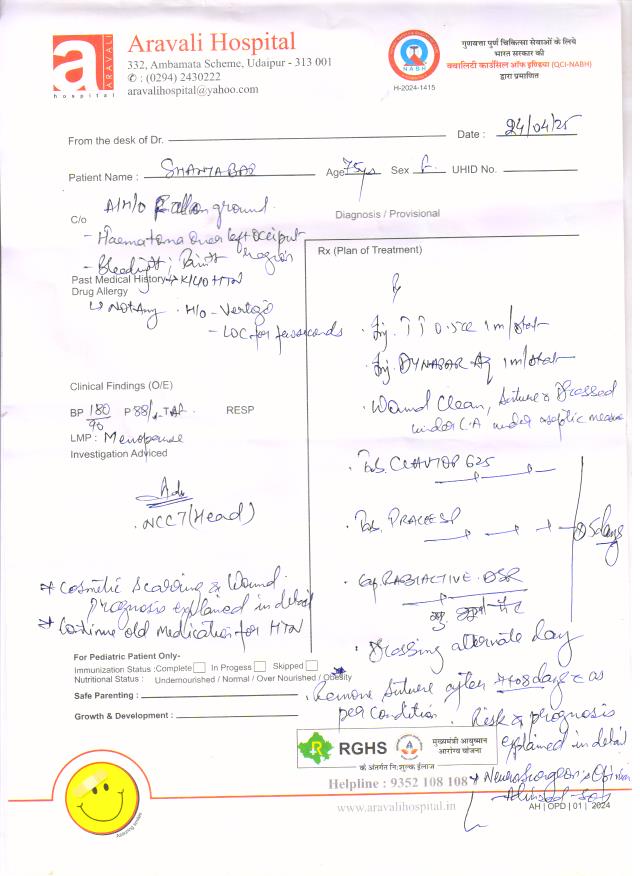 ARAVALI
hospital
Aravali Hospital
332, Ambamata Scheme, Udaipur - 313 001
: (0294) 2430222
aravalihospital@yahoo.com
NABH
H-2024-1415
गुणवत्ता पूर्ण चिकित्सा सेवाओं के लिये
भारत सरकार की
क्वालिटी काउंसिल ऑफ इण्डिया (QCI-NABH)
द्वारा प्रमाणित
From the desk of Dr.
Date : 24/04/25
Patient Name : SHANTABAI Age 75ys Sex F. UHID No.
C/o A/H/O Fall on ground
- Haematoma over left occiput region
- Bleeding +
Diagnosis / Provisional
Past Medical History → K/C/O HTN
Drug Allergy
↳ Not Any . H/O - Vertigo
- LOC for few seconds
Clinical Findings (O/E)
BP 180/90 P 88/ RESP
LMP : Menopause
Investigation Adviced
Adv
. NCCT (Head)
* Cosmetic scarring & Wound
Prognosis explained in detail
* Continue old medication for HTN
Rx (Plan of Treatment)
Rx
. Inj. TT 0.5cc im/stat
. Inj. DYNAPAR AQ im/stat
. Wound Clean, suture & Dressed
under L.A under aseptic measure
. Tab. CLAVTOP 625
. Tab. PRACESP
5 days
. Cap. RABIACTIVE DSR
. Dressing alternate day
. Remove suture after 7 to 8 days & as
per condition . Risk & prognosis
explained in detail
* Neurosurgeon's Opinion
Advised
For Pediatric Patient Only-
Immunization Status : Complete In Progess Skipped
Nutritional Status : Undernourished / Normal / Over Nourished / Obesity
Safe Parenting :
Growth & Development :
RGHS
मुख्यमंत्री आयुष्मान
आरोग्य योजना
के अंतर्गत निःशुल्क ईलाज
Helpline : 9352 108 108
www.aravalihospital.in
AH | OPD | 01 | 2024
Assuring smiles